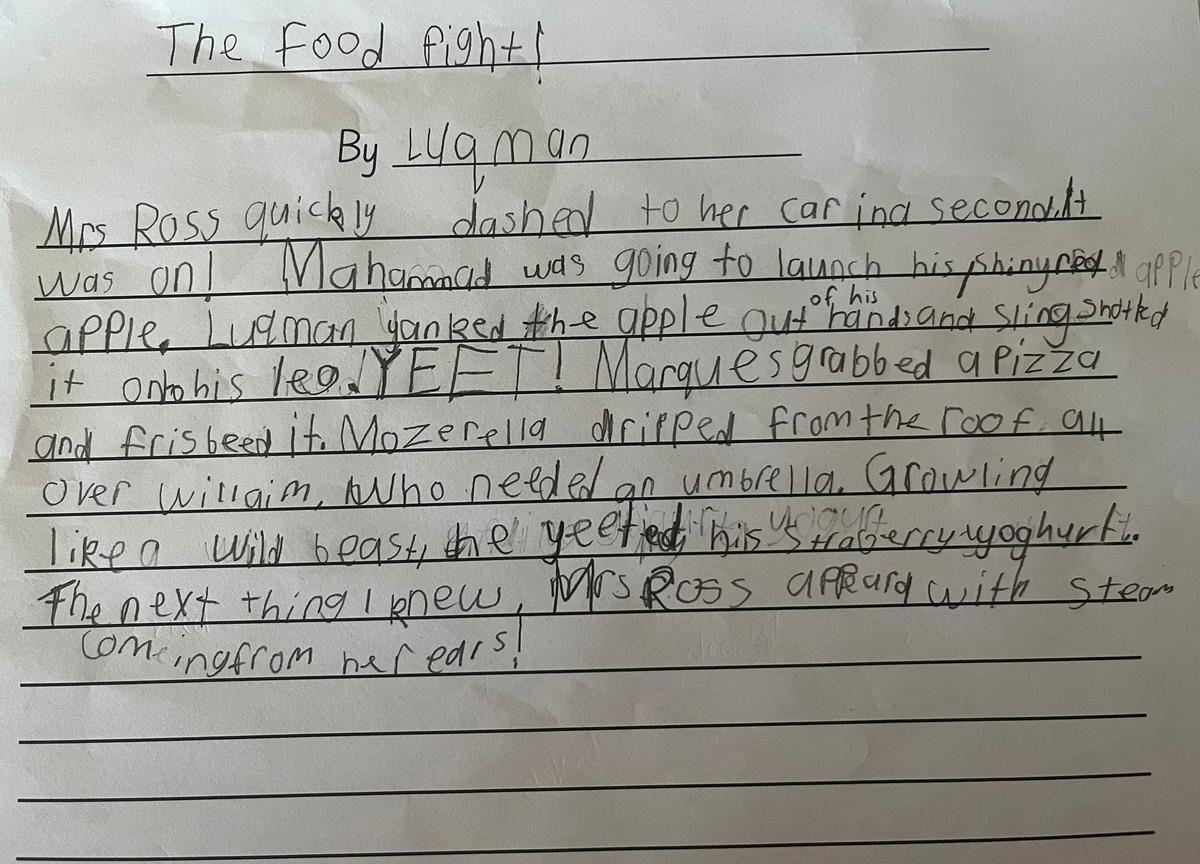 The Food fight!
By Luqman
Mrs Ross quickly dashed to her car in a second. It
was on! Mahammad was going to launch his shiny red apple
apple. Luqman yanked the apple out of his hands and slingshotted
it onto his leg. YEET! Marques grabbed a pizza
and frisbeed it. Mozerella dripped from the roof all
over willaim, Who needed an umbrella. Growling
like a wild beast, he yeeted his straberry yoghurt.
The next thing I knew, Mrs Ross appeard with steam
coming from her ears!